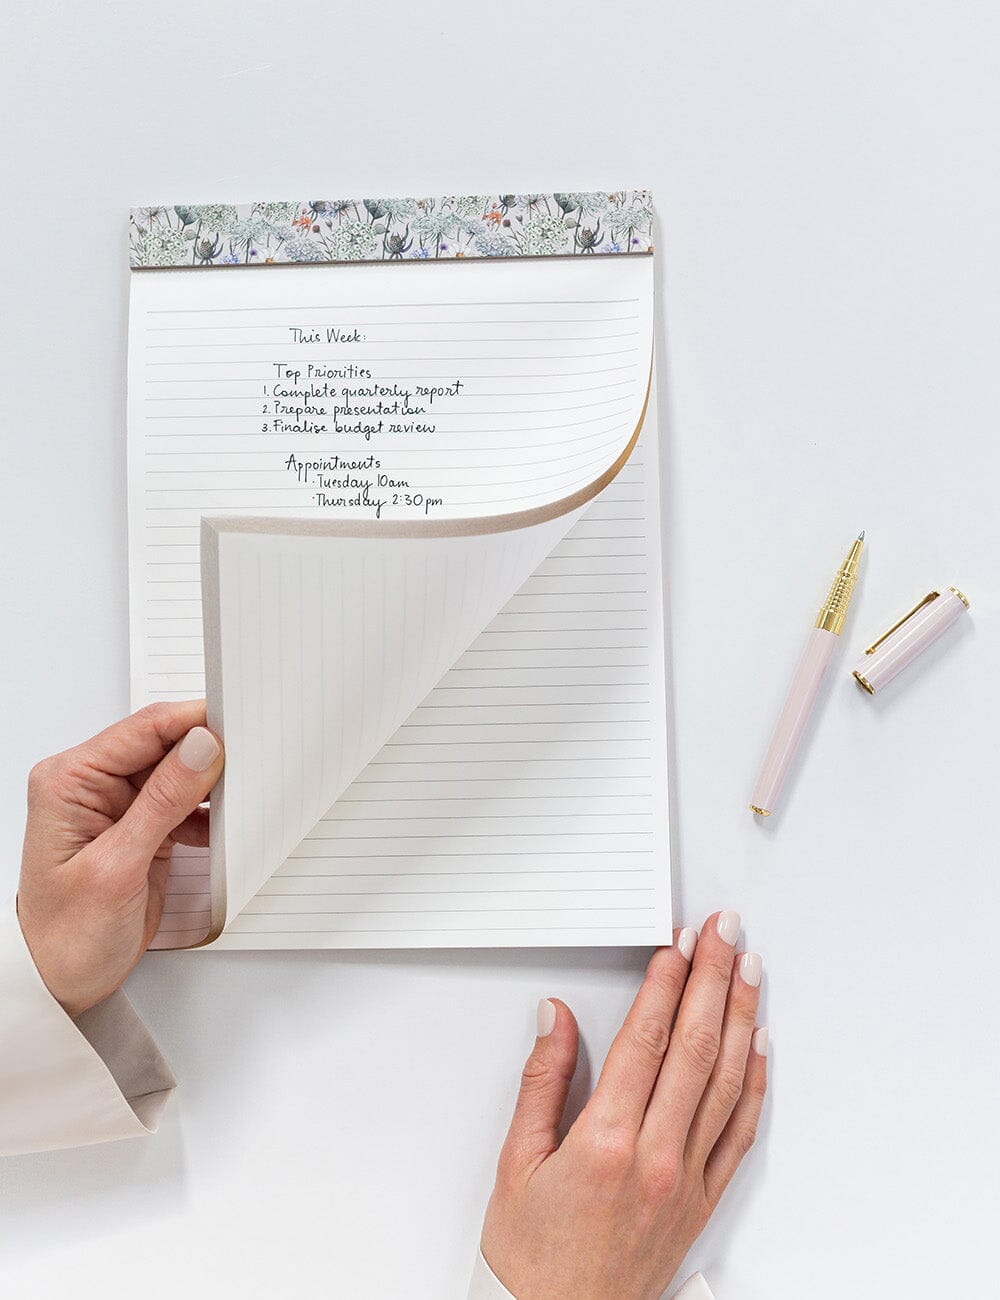 This Week:
Top Priorities
1. Complete quarterly report
2. Prepare presentation
3. Finalise budget review
Appointments
· Tuesday 10am
· Thursday 2:30pm